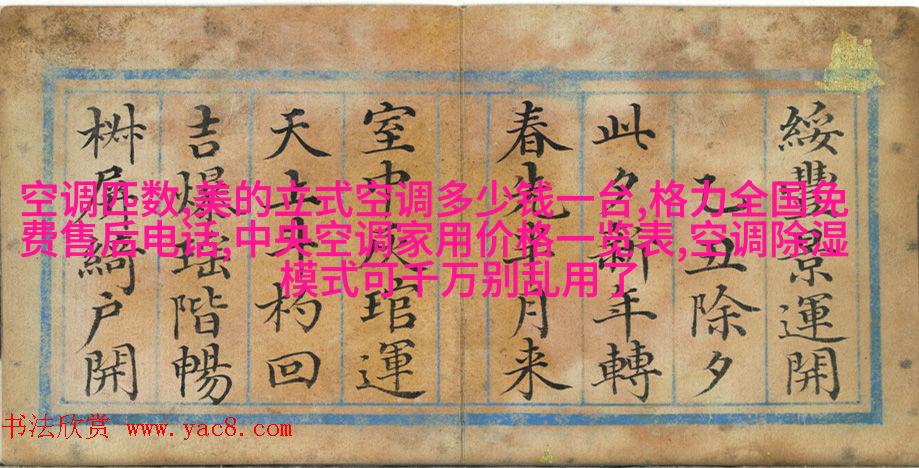 空调匹数,美的立式空调多少钱一台,格力全国免
费售后电话,中央空调家用价格一览表,空调除湿
模式可千万别乱用了
綏豐景運開
乙丑除夕
此夕新年轉
春先半月来
室中灰琯運
天上斗杓回
吉爆瑶階暢
椒屏綺戶開
书法欣赏 www.yac8.com